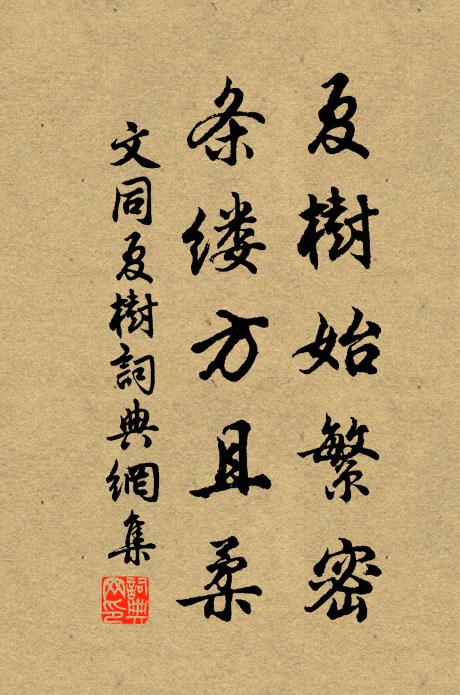 夏樹始繁密
条缕方且柔
文同夏樹詞典網集
詞典
网印